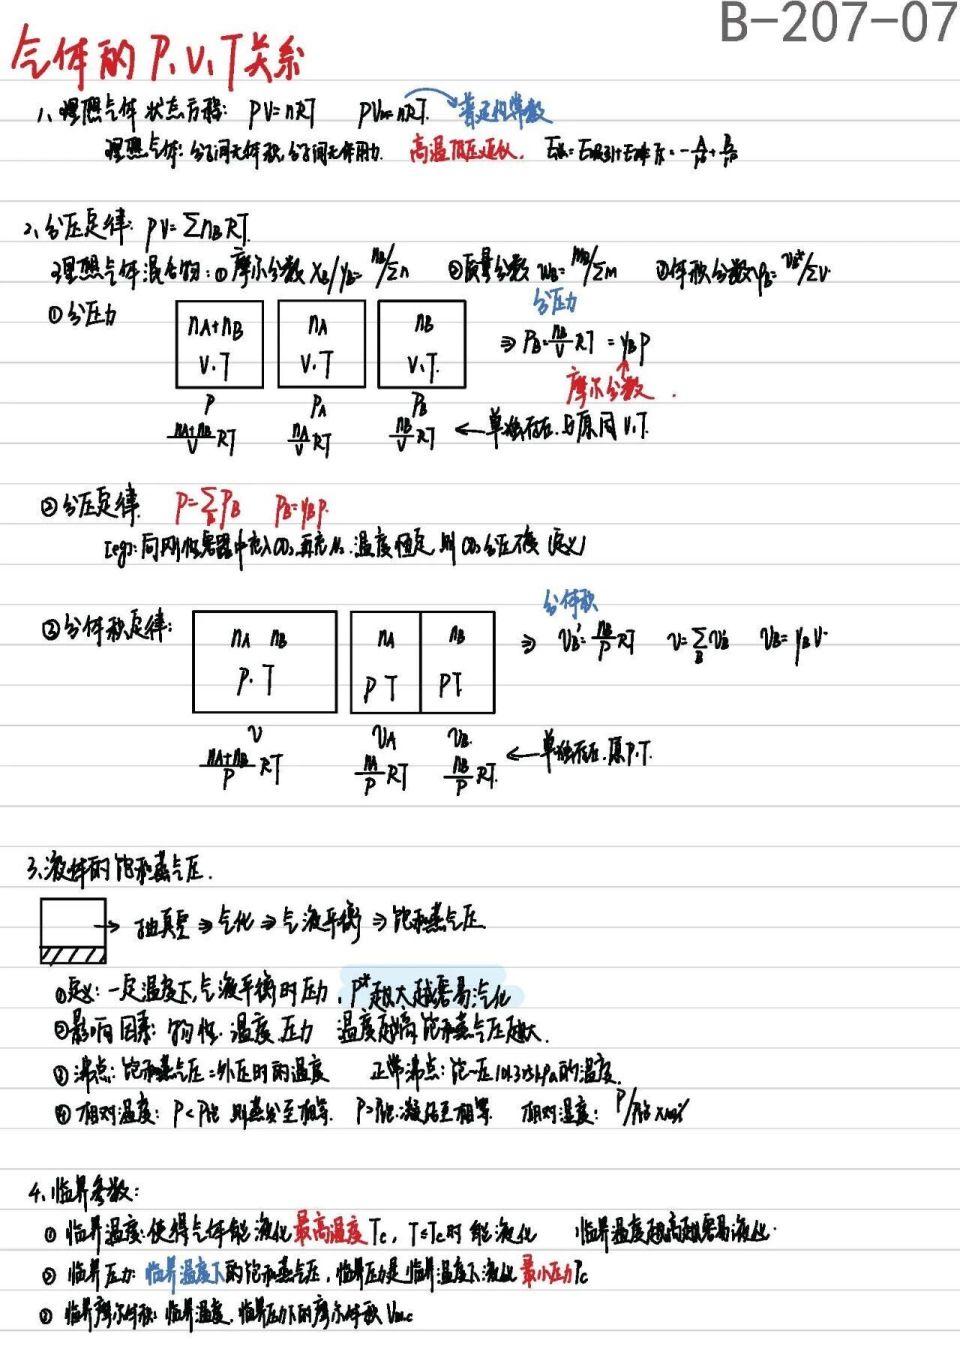 B-207-07
气体的 P、V、T关系
1、理想气体 状态方程: PV=nRT PVm=nRT. 普适气体常数
理想气体: 分子间无体积, 分子间无作用力. 高温低压近似.
2、分压定律: PV=ΣnBRT.
理想气体混合物: ①摩尔分数 xB/yB=nB/Σn ②质量分数 wB=mB/Σm ③体积分数 φB=VB*/ΣV
①分压力
nA+nB nA nB
V.T V.T V.T.
分压力
⇒ PB=nB/V RT = yB P
摩尔分数.
P PA PB
nA+nB/V RT nA/V RT nB/V RT ← 单独存在.与原同V.T.
②分压定律 P=ΣPB PB=yBP.
[eg]: 向刚性容器中充入CO₂, 再充N₂, 温度恒定, 则CO₂分压不变 (定义)
③分体积定律:
nA nB nA nB
P.T PT PT.
分体积
⇒ VB'=nB/P RT V=ΣVB' VB=yBV
V VA VB.
nA+nB/P RT nA/P RT nB/P RT. ← 单独存在.原P.T.
3、液体的饱和蒸气压.
→ 抽真空 ⇒ 气化 ⇒ 气液平衡 ⇒ 饱和蒸气压
①定义: 一定温度下, 气液平衡时压力, P*越大越容易汽化
②影响因素: 物性. 温度.压力 温度越高饱和蒸气压越大.
③沸点: 饱和蒸气压=外压时的温度 正常沸点: 饱~压101.325kPa的温度.
④相对湿度: P<P饱 则蒸发至相等. P>P饱.凝结至相等. 相对湿度: P/P饱×100%
4、临界参数:
①临界温度:使得气体能液化最高温度Tc, T≤Tc时 能液化 临界温度越高越容易液化.
②临界压力: 临界温度下的饱和蒸气压, 临界压力是临界温度下液化最小压力Pc
③临界摩尔体积: 临界温度.临界压力下的摩尔体积 Vm,c